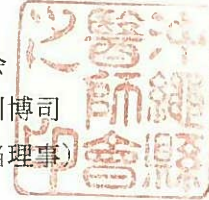 会
博司
理事）
沖繩縣
醫師會
之印